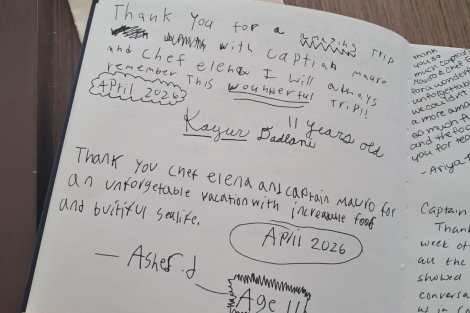 Thank you for a amazing trip
with captian mauro
and chef elena I will always
remember This wounderful Trip!!
April 2026
11 years old
Kayur Dadlani
Thank you chef elena and captain Mauro for
an unforgetable vacation with increadable food
and buitiful sealife.
April 2026
— Asher.d
Age 11
think
you so
much capt
for a wonder
unforgetable
we could ha
a more am
so much f
and the fo
you for tea
- Ariya
Captain
Thank
week of
all the
showed
conversa